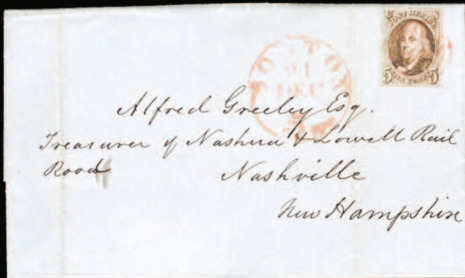 POST OFFICE
5 5
FIVE CENTS
BOSTON
DEC
Alfred Greeley Esq.
Treasurer of Nashua & Lowell Rail
Road
Nashville
New Hampshire